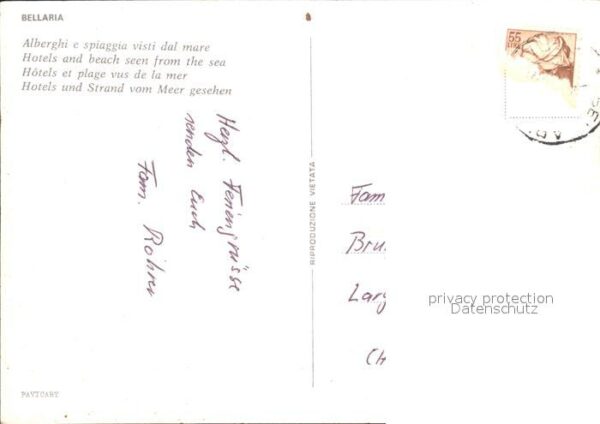 BELLARIA
Alberghi e spiaggia visti dal mare
Hotels and beach seen from the sea
Hôtels et plage vus de la mer
Hotels und Strand vom Meer gesehen
Herzl. Feriengrüsse
senden Euch
Fam. Röhrer
RIPRODUZIONE VIETATA
55
LIRE
Fam
Bru
Lar
CH
privacy protection
Datenschutz
PAVTCART